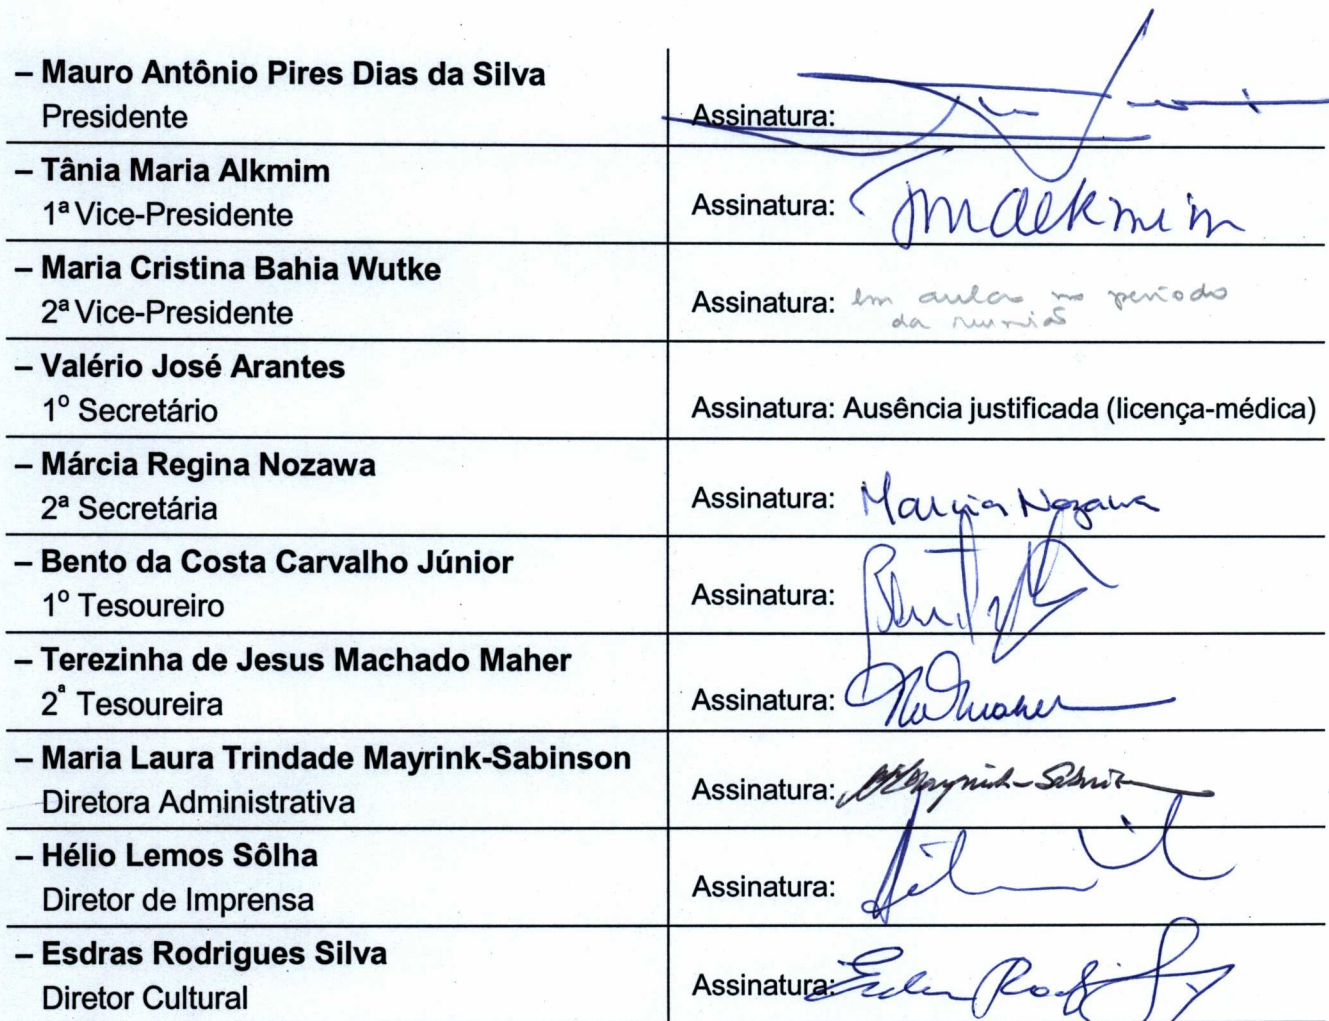 – Mauro Antônio Pires Dias da Silva
Presidente
Assinatura:
– Tânia Maria Alkmim
1ª Vice-Presidente
Assinatura: Tmalkmim
– Maria Cristina Bahia Wutke
2ª Vice-Presidente
Assinatura: em aula no período
da reunião
– Valério José Arantes
1º Secretário
Assinatura: Ausência justificada (licença-médica)
– Márcia Regina Nozawa
2ª Secretária
Assinatura: Marcia Nozawa
– Bento da Costa Carvalho Júnior
1º Tesoureiro
Assinatura:
– Terezinha de Jesus Machado Maher
2ª Tesoureira
Assinatura:
– Maria Laura Trindade Mayrink-Sabinson
Diretora Administrativa
Assinatura:
– Hélio Lemos Sôlha
Diretor de Imprensa
Assinatura:
– Esdras Rodrigues Silva
Diretor Cultural
Assinatura: